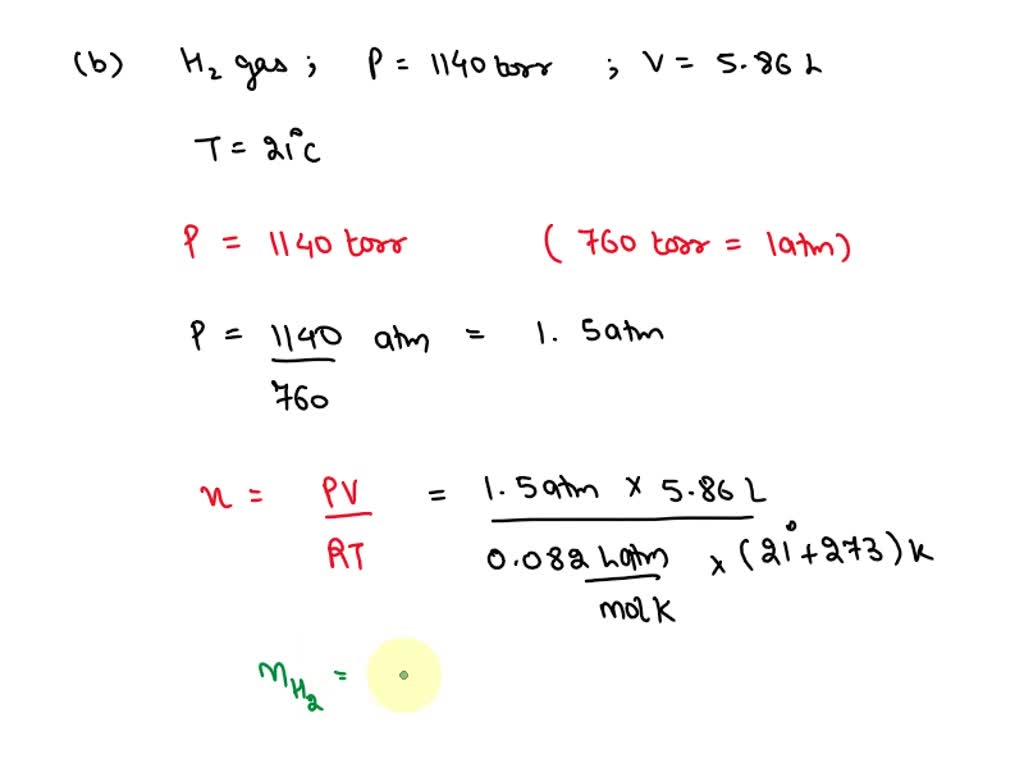 (b) H₂ gas ; P = 1140 torr ; V = 5.86 L
T = 21°C
P = 1140 torr (760 torr = 1atm)
P = 1140/760 atm = 1.5atm
n = PV/RT = 1.5atm × 5.86 L / 0.082 L atm/mol K × (21° + 273) K
n H₂ =